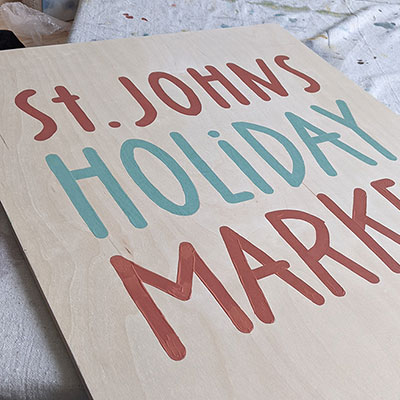 St. JOHNS
HOLiDAY
MARKE